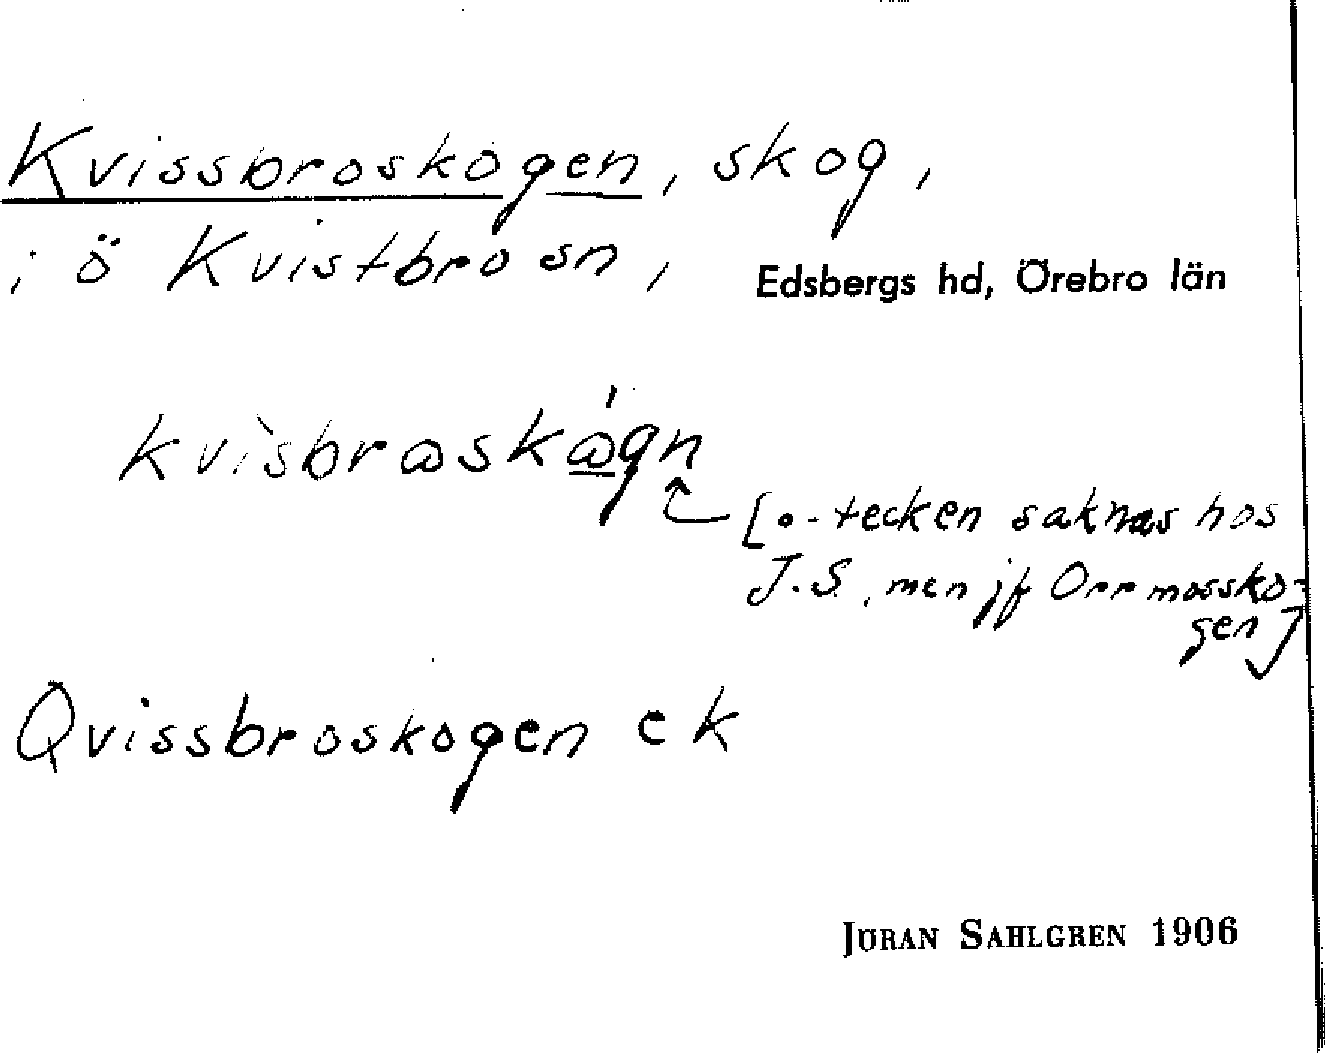 Kvissbroskogen, skog,
i ö Kvistbro sn, Edsbergs hd, Örebro län
kvìsbrɷskɷ́gn
[o-tecken saknas hos
J.S., men jf Orrmossko-
gen]
Qvissbroskogen ek
JÖRAN SAHLGREN 1906